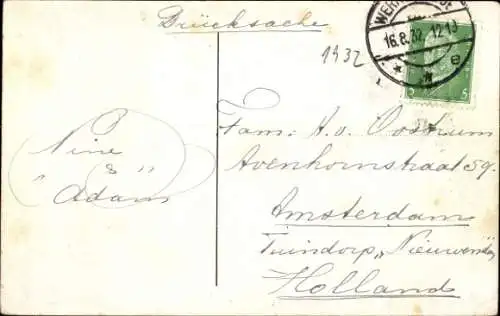 Drücksache
1932
16.8.32. 12-13
e
5 5
Nine
"&"
Adam
Fam: A. v. Oostrum
Avenhornstraat 59.
Amsterdam
Tuindorp "Nieuwendam"
Holland